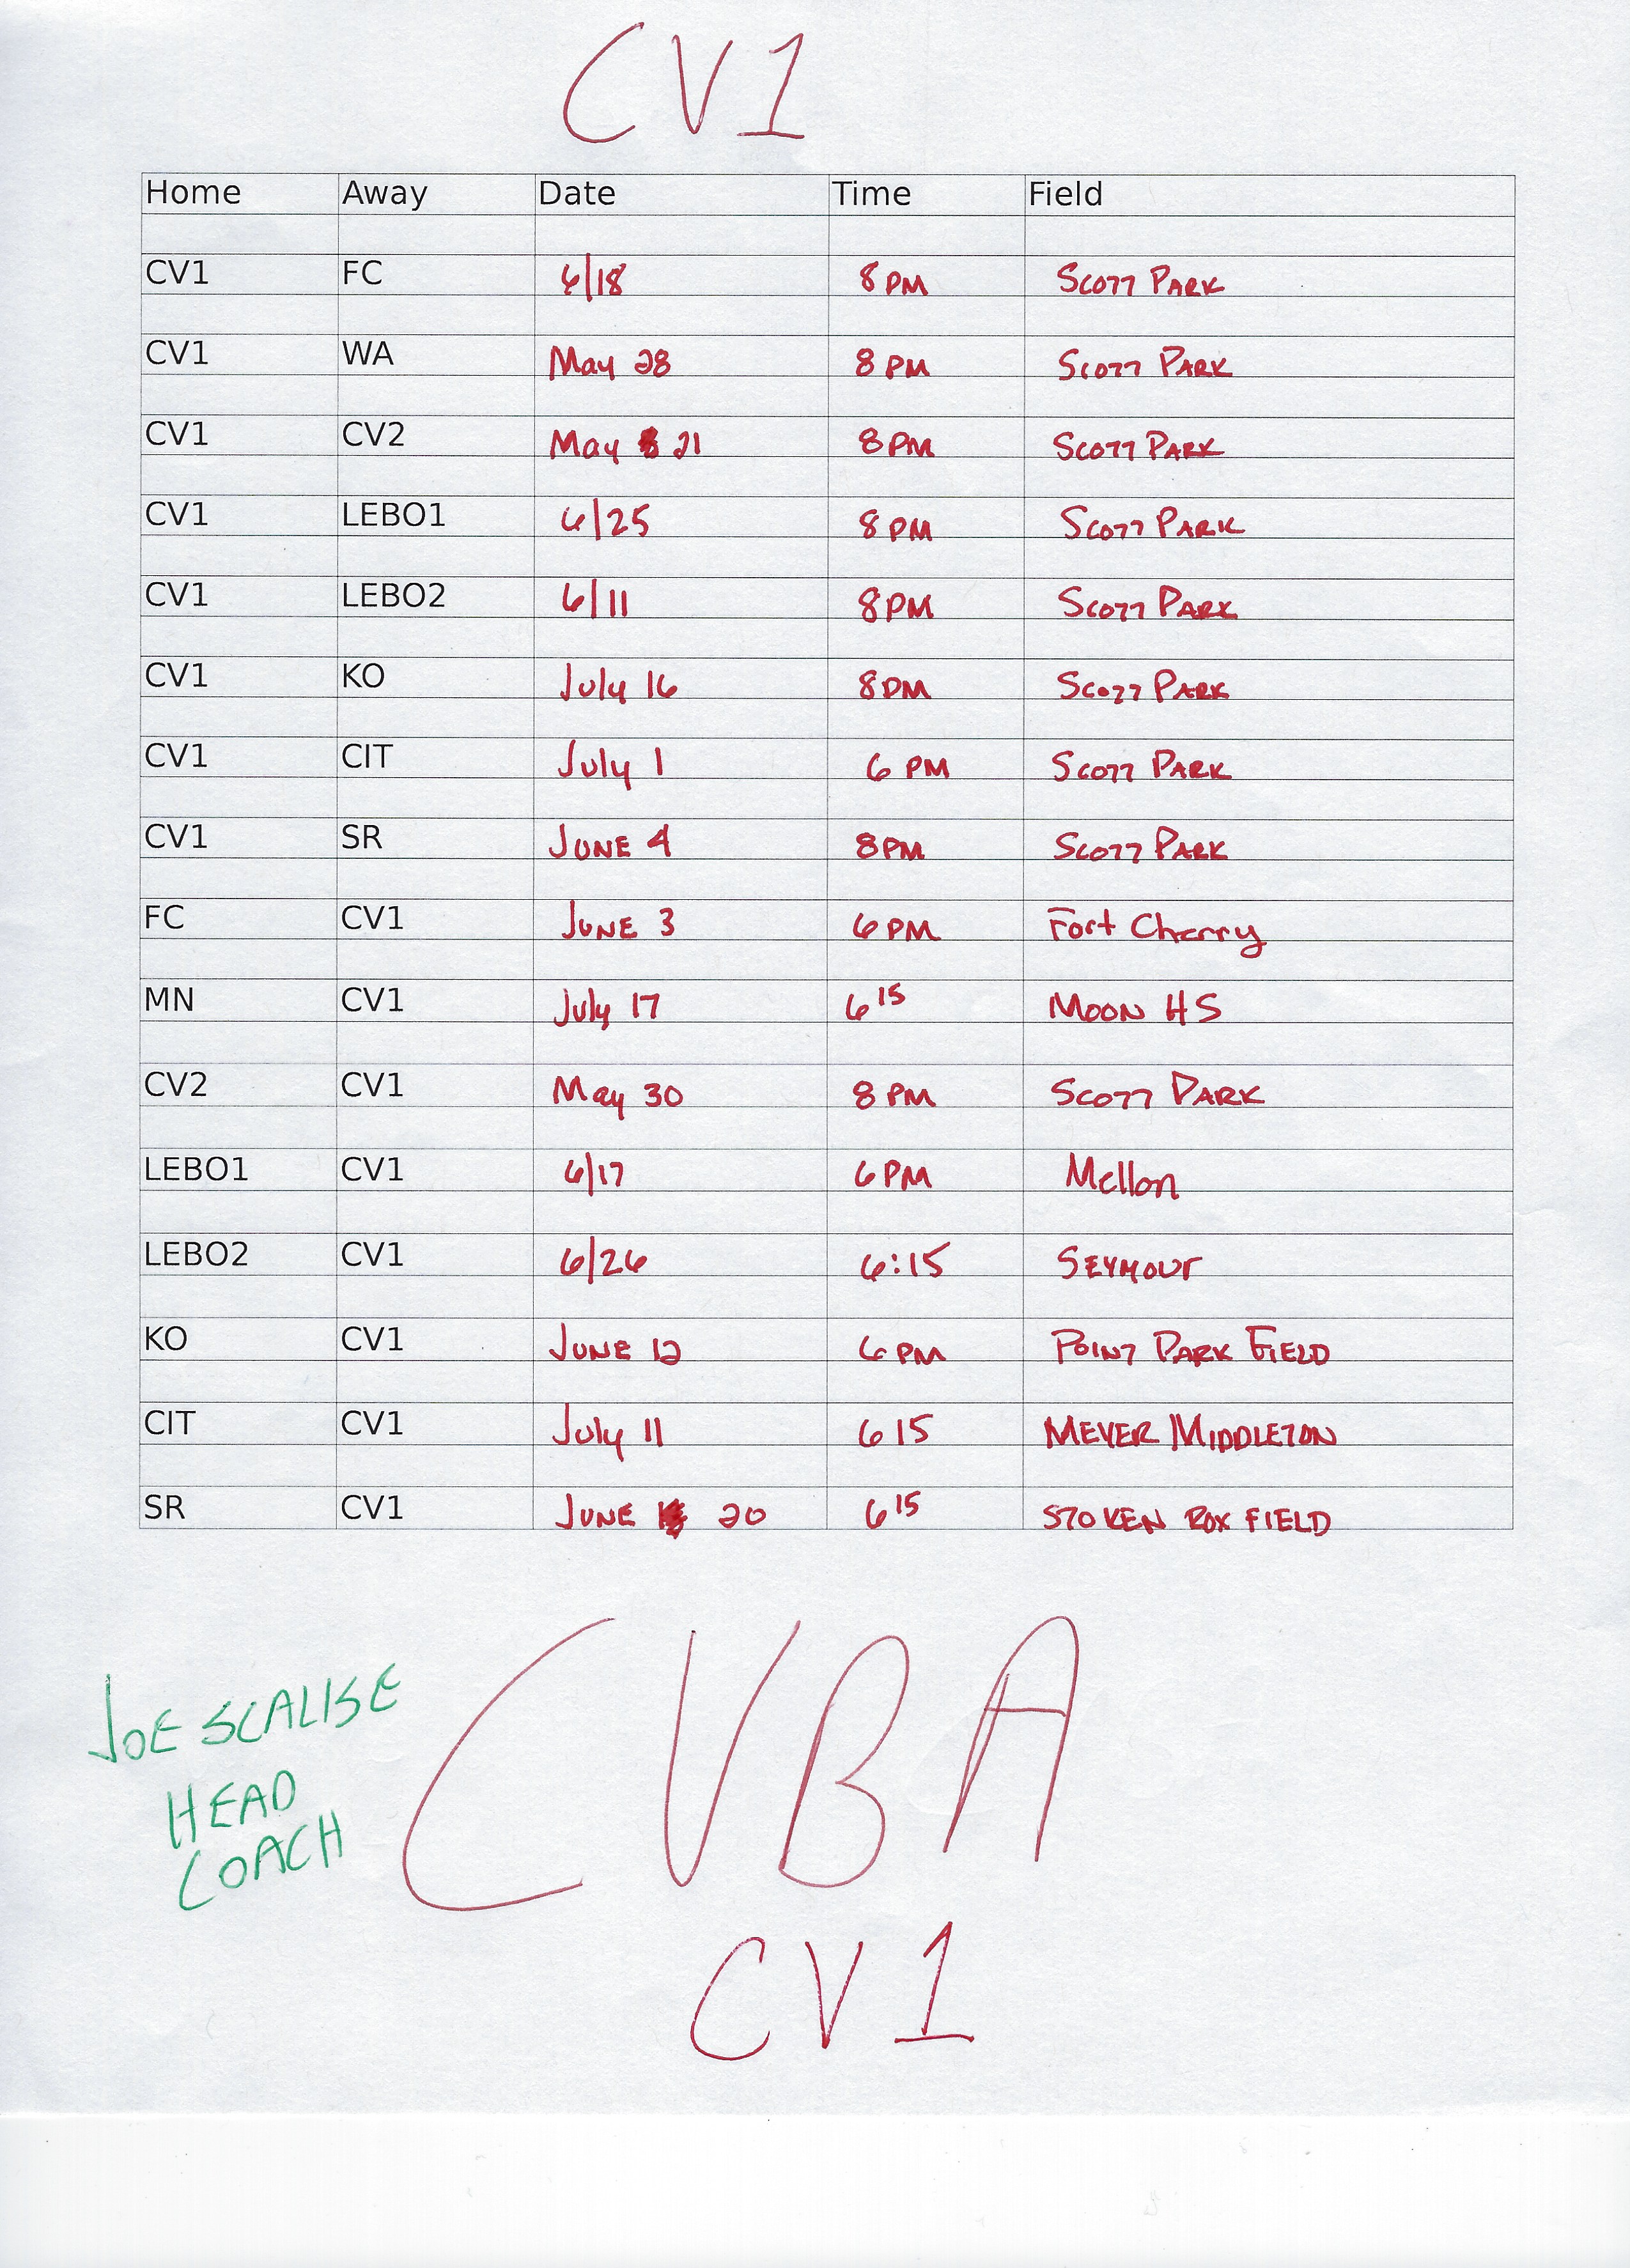 CV1
Home Away Date Time Field
CV1 FC 6/18 8 PM SCOTT PARK
CV1 WA May 28 8 PM SCOTT PARK
CV1 CV2 May 21 8PM SCOTT PARK
CV1 LEBO1 6/25 8 PM SCOTT PARK
CV1 LEBO2 6/11 8PM SCOTT PARK
CV1 KO July 16 8PM SCOTT PARK
CV1 CIT July 1 6 PM SCOTT PARK
CV1 SR JUNE 4 8PM SCOTT PARK
FC CV1 JUNE 3 6 PM Fort Cherry
MN CV1 July 17 6 15 MOON HS
CV2 CV1 May 30 8 PM SCOTT PARK
LEBO1 CV1 6/17 6 PM Mellon
LEBO2 CV1 6/26 6:15 SEYMOUR
KO CV1 JUNE 12 6 PM POINT PARK FIELD
CIT CV1 July 11 6 15 MEYER MIDDLETON
SR CV1 JUNE 20 6 15 STO KEN ROX FIELD
JOE SCALISE
HEAD
COACH
CVBA
CV1